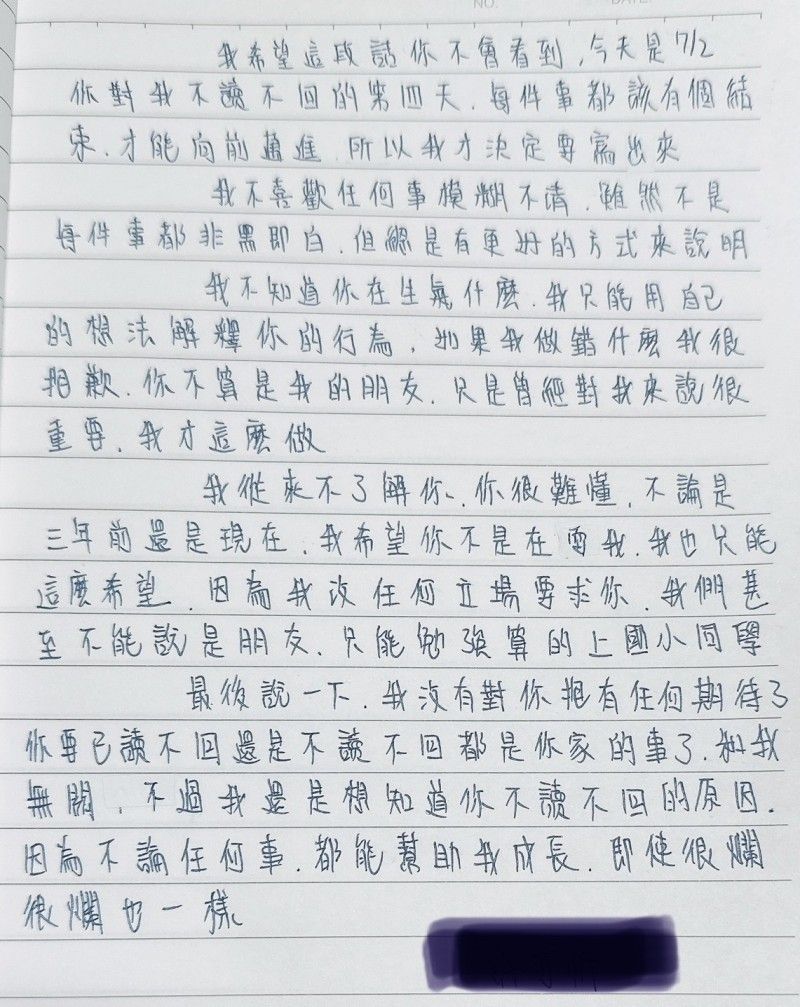 NO. DATE.
我希望這段話你不會看到,今天是7/2
你對我不讀不回的第四天,每件事都該有個結
束,才能向前邁進,所以我才決定要寫出來
我不喜歡任何事模糊不清,雖然不是
每件事都非黑即白,但總是有更好的方式來說明
我不知道你在生氣什麼,我只能用自己
的想法解釋你的行為,如果我做錯什麼我很
抱歉,你不算是我的朋友,只是曾經對我來說很
重要,我才這麼做
我從來不了解你,你很難懂,不論是
三年前還是現在,我希望你不是在耍我,我也只能
這麼希望,因為我沒任何立場要求你,我們甚
至不能說是朋友,只能勉強算的上國小同學
最後說一下,我沒有對你抱有任何期待了
你要已讀不回還是不讀不回都是你家的事了,和我
無關,不過我還是想知道你不讀不回的原因,
因為不論任何事,都能幫助我成長,即使很爛
很爛也一樣